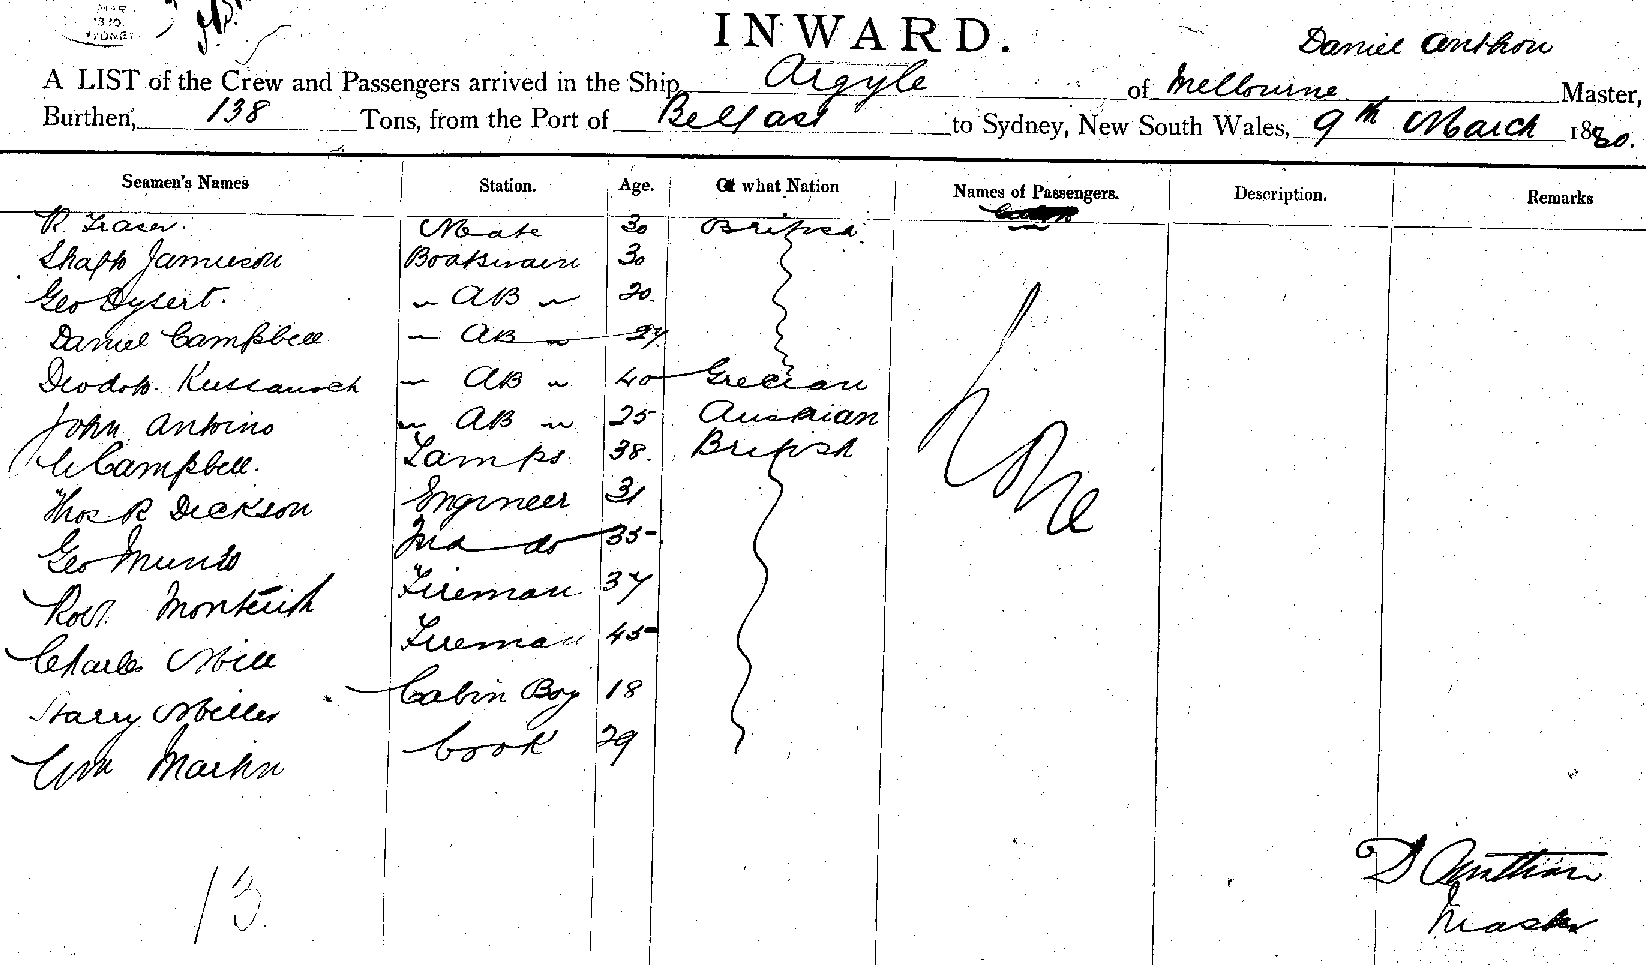 MAR
SYDNEY
INWARD.
Daniel Anthon
A LIST of the Crew and Passengers arrived in the Ship Argyle of Melbourne Master,
Burthen, 138 Tons, from the Port of Belfast to Sydney, New South Wales, 9th March 1880.
Seamen's Names Station. Age. Of what Nation Names of Passengers. Description. Remarks
R Fraser. Mate 30 British
Jamieson Boatswain 30
Geo Dysert. " AB " 20
Daniel Campbell " AB " 27
AB " 40 Grecian
John Antoino " AB " 25 Austrian
Campbell. Lamps 38. British
Thos R Dickson Engineer 31
Geo Munro 2nd do 35
Robt. Monteith Fireman 37
Charles Mill Fireman 45
Harry Miller Cabin Boy 18
Wm Martin Cook 29
13.
D Anthon
Master